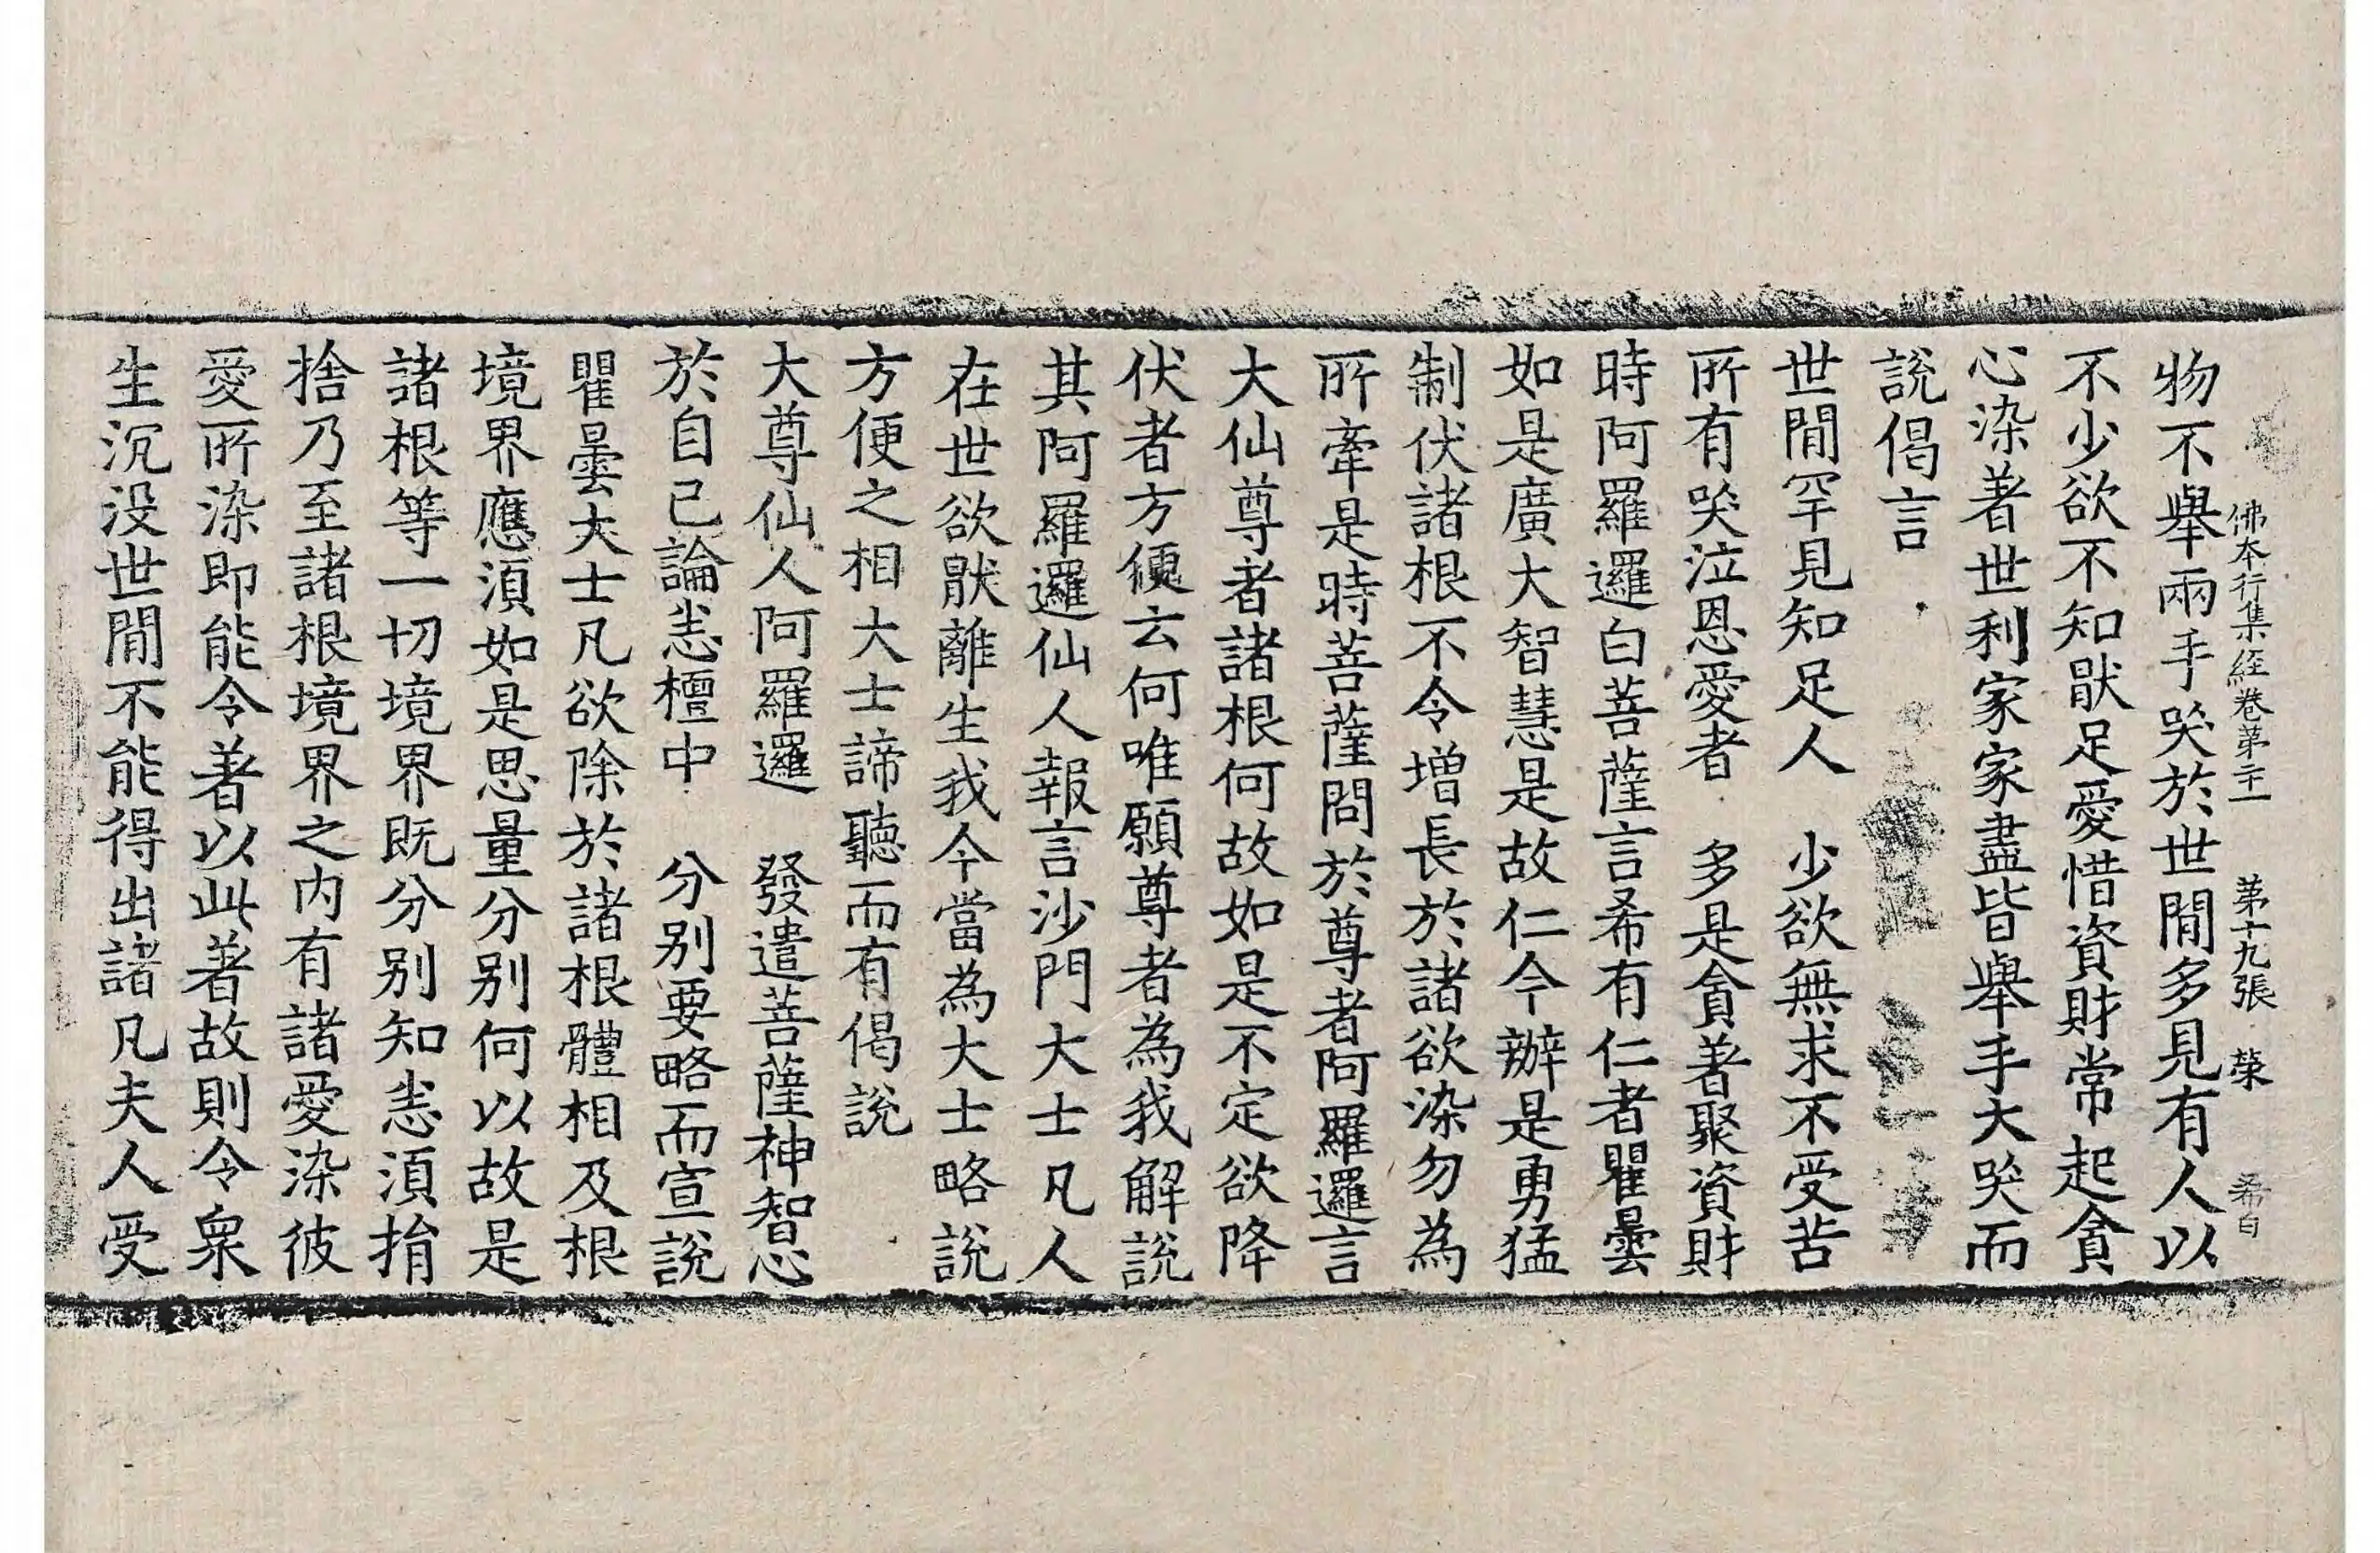 佛本行集經卷第二十一　第十九張　㯋　希白
物不舉兩手哭於世間多見有人以
不少欲不知猒足愛惜資財常起貪
心染著世利家家盡皆舉手大哭而
說偈言
世間罕見知足人　少欲無求不受苦
所有哭泣恩愛者　多是貪著聚資財
時阿羅邏白菩薩言希有仁者瞿曇
如是廣大智慧是故仁今辦是勇猛
制伏諸根不令增長於諸欲染勿為
所牽是時菩薩問於尊者阿羅邏言
大仙尊者諸根何故如是不定欲降
伏者方便云何唯願尊者為我解說
其阿羅邏仙人報言沙門大士凡人
在世欲猒離生我今當為大士略說
方便之相大士諦聽而有偈說
大尊仙人阿羅邏　發遣菩薩神智心
於自己論恚檀中　分別要略而宣說
瞿曇大士凡欲除於諸根體相及根
境界應須如是思量分別何以故是
諸根等一切境界既分別知恚須捐
捨乃至諸根境界之內有諸愛染彼
愛所染即能令著以此著故則令衆
生沉沒世間不能得出諸凡夫人受